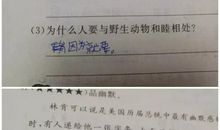 (3)为什么人要与野生动物和睦相处?
因为
★★★★)品幽默。
林肯可以说是美国历届总统中最有幽默感
时,有人递给他一张字条